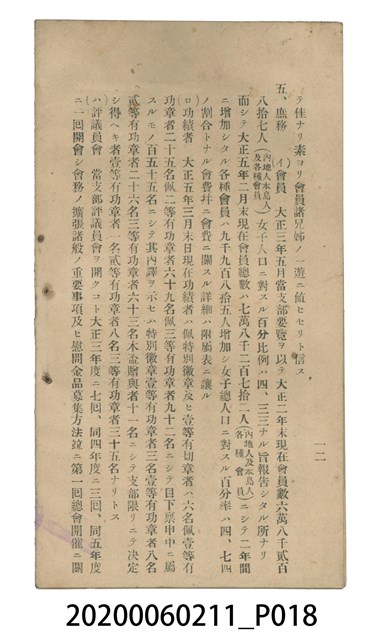 テ佳ナリ素ヨリ會員諸兄姊ノ一遊ニ値ヒセリト信ス
五、庶務
(イ)會員 大正三年五月當支部要覽ヲ以テ大正二年末現在會員數六萬八千貳百
八拾七人(內地人本島人及各種會員)女子人口ニ對スル百分比例ハ四、三三ナル旨報告シタル所ナリ
而シテ大正五年二月末現在會員總數ハ七萬八千二百七拾二人(內地人及本島人各種會員)ニシテ二年間
ニ增加シタル各種會員ハ九千九百八拾五人增加シ女子總人口ニ對スル百分率ハ四、七四
ノ割合トナル會費幷ニ會費ニ關スル詳細ハ附屬表ニ讓ル
(ロ)功績者 大正五年三月末日現在功績者ハ佩特別徽章及ヒ壹等有功章者ハ六名佩壹等有
功章者二十五名佩二等有功章者六十九名佩三等有功章者九十二名ニシテ目下禀申中ニ屬
スルモノ百五十五名ニシテ其內譯ヲ示セハ特別徽章壹等有功章者三名壹等有功章者八名
貳等有功章者二十六名三等有功章者六十三名木盃贈與者十一名ニシテ支部限リニテ決定
シ得ヘキ者壹等有功章者一名貳等有功章者八名三等有功章者三十五名ナリトス
(ハ)評議員會 當支部評議員會ヲ開クコト大正三年度ニ七回、同四年度ニ三回、同五年度
ニ一回開會シ會務ノ擴張諸般ノ重要事項及ヒ慰問金品募集方法竝ニ第一回總會開催ニ關
一二
20200060211_P018